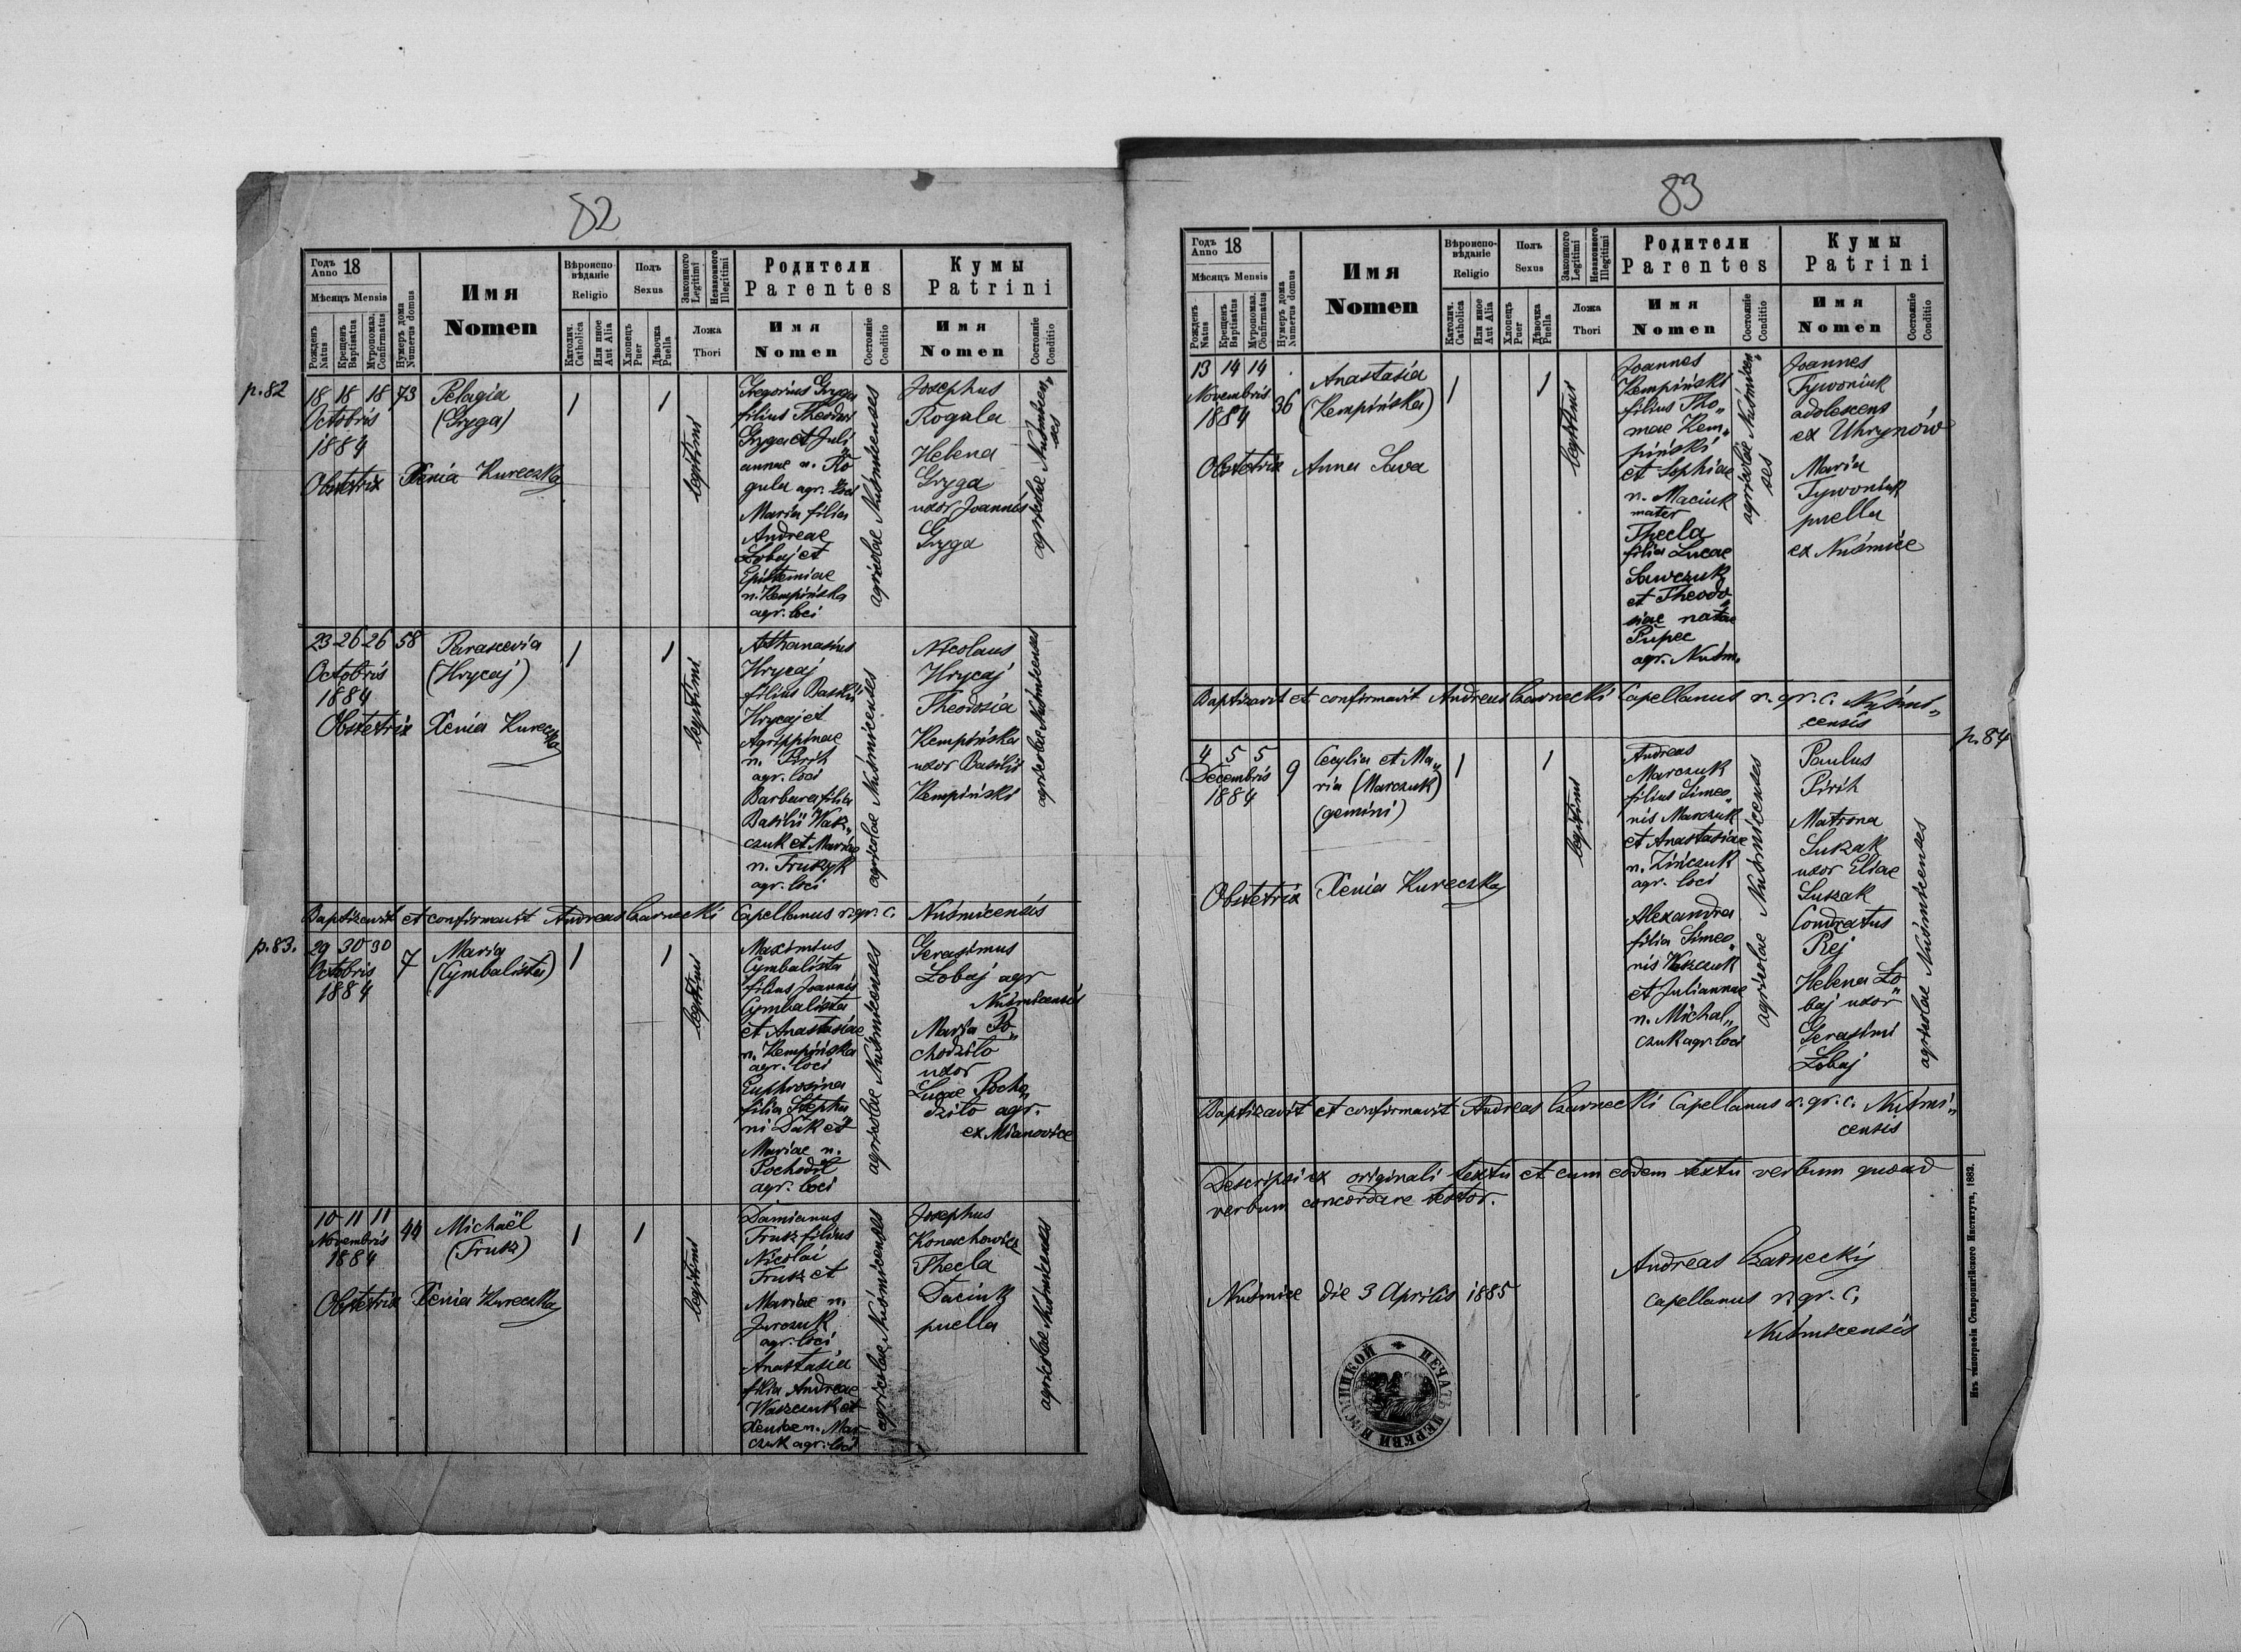 82
Годъ Anno 18
Мѣсяцъ Mensis
Рожденъ Natus
Крещенъ Baptisatus
Мѵропомаз. Confirmatus
Нумеръ дома Numerus domus
Имя
Nomen
Вѣроиспо-
вѣданіе
Religio
Католич. Catholica
Или иное Aut Alia
Полъ
Sexus
Хлопецъ Puer
Дѣвочка Puella
Законного Legitimi
Незаконного Illegitimi
Ложа
Thori
Родители
Parentes
Имя
Nomen
Состояніе Conditio
Кумы
Patrini
Имя
Nomen
Состояніе Conditio
p. 82
18 18 18 73
Octobris
1884
Pelagia
(Gryga)
1 1
legitimi
Gregorius Gryga
filius Theodori
Gryga et Juli„
annae n. Ro„
gula agr. loci
Maria filia
Andreae
Łobaj et
Epistemiae
n. Kempińska
agr. loci
agricolae Nuśmicenses
Josephus
Rogula
Helena
Gryga
uxor Joannis
Gryga
agricolae Nuśmicen„
ses
Obstetrix Xenia Kureczka
23 26 26 58
Octobris
1884
Parascevia
(Hrycaj)
1 1
legitimi
Athanasius
Hrycaj
filius Basilii
Hrycaj et
Agrippinae
n. Pirih
agr. loci
Barbara filia
Basilii Wasz„
czuk et Mariae
n. Fruszyk
agr. loci
agricolae Nuśmicenses
Nicolaus
Hrycaj
Theodosia
Kempińska
uxor Basilii
Kempiński
agricolae Nuśmicenses
Obstetrix Xenia Kureczka
Baptizavit et confirmavit Andreas Czarnecki Capellanus r. gr. c. Nuśmicensis
p. 83.
29 30 30 7
Octobris
1884
Maria
(Cymbalista)
1 1
legitimi
Maximius
Cymbalista
filius Joannis
Cymbalista
et Anastasiae
n. Kempińska
agr. loci
Euphrosina
filia Stepha„
ni Dak et
Mariae n.
agr. loci
agricolae Nuśmicenses
Gerasimus
Łobaj agr
Nuśmicensis
Maria Po„
chodziło
uxor
Lucae Pocho„
dziło agr.
ex Mianovice
10 11 11 44
Novembris
1884
Michaël
(Fruk)
1 1
legitimi
Damianus
Fruk filius
Nicolai
Fruk et
Mariae n.
Jurczuk
agr. loci
Anastasia
filia Andreae
Waszczuk et
Xeniae n. Mar„
czuk agr. loci
agricolae Nuśmicenses
Josephus
Thecla
Daciuk
puella
agricolae Nuśmicenses
Obstetrix Xenia Kureczka
83
Годъ Anno 18
Мѣсяцъ Mensis
Рожденъ Natus
Крещенъ Baptisatus
Мѵропомаз. Confirmatus
Нумеръ дома Numerus domus
Имя
Nomen
Вѣроиспо-
вѣданіе
Religio
Католич. Catholica
Или иное Aut Alia
Полъ
Sexus
Хлопецъ Puer
Дѣвочка Puella
Законного Legitimi
Незаконного Illegitimi
Ложа
Thori
Родители
Parentes
Имя
Nomen
Состояніе Conditio
Кумы
Patrini
Имя
Nomen
Состояніе Conditio
13 14 14
Novembris 36
1884
Anastasia
(Kempińska)
1 1
legitimi
Joannes
Kempiński
filius Tho„
mae Kem„
piński
et Sophiae
n. Maciuk
mater
Thecla
filia Lucae
Sawczuk
et Theodo„
siae natae
Pupec
agr. Nuśm.
agricolae Nuśmicen„
ses
Joannes
Tywoniuk
adolescens
ex Uhrynów
Maria
Tywoniuk
puella
ex Nuśmice
Obstetrix Anna Sawa
Baptizavit et confirmavit Andreas Czarnecki Capellanus r. gr. c. Nuśmi„
censis
p. 84
4 5 5 9
Decembris
1884
Cecylia et Ma„
ria (Marczuk)
(gemini)
1 1
legitimi
Andreas
Marczuk
filius Simeo„
nis Marczuk
et Anastasiae
n. Zińczuk
agr. loci
Alexandra
filia Simeo„
nis Waszczuk
et Juliannae
n. Michal„
czuk agr. loci
agricolae Nuśmicenses
Paulus
Pirih
Matrona
Suszak
uxor Eliae
Suszak
Condratus
Rej
Helena Ło„
baj uxor
Gerasimi
Łobaj
agricolae Nuśmicenses
Obstetrix Xenia Kureczka
Baptizavit et confirmavit Andreas Czarnecki Capellanus r. gr. c. Nuśmi„
censis
Descripsi ex originali textu et cum eodem textu verbum quoad
verbum concordare testor.
Andreas Czarneckij
Capellanus r. gr. c.
Nuśmicensis
Nuśmice die 3 Aprilis 1885
Изъ типографіи Ставропигійского Института, 1882.